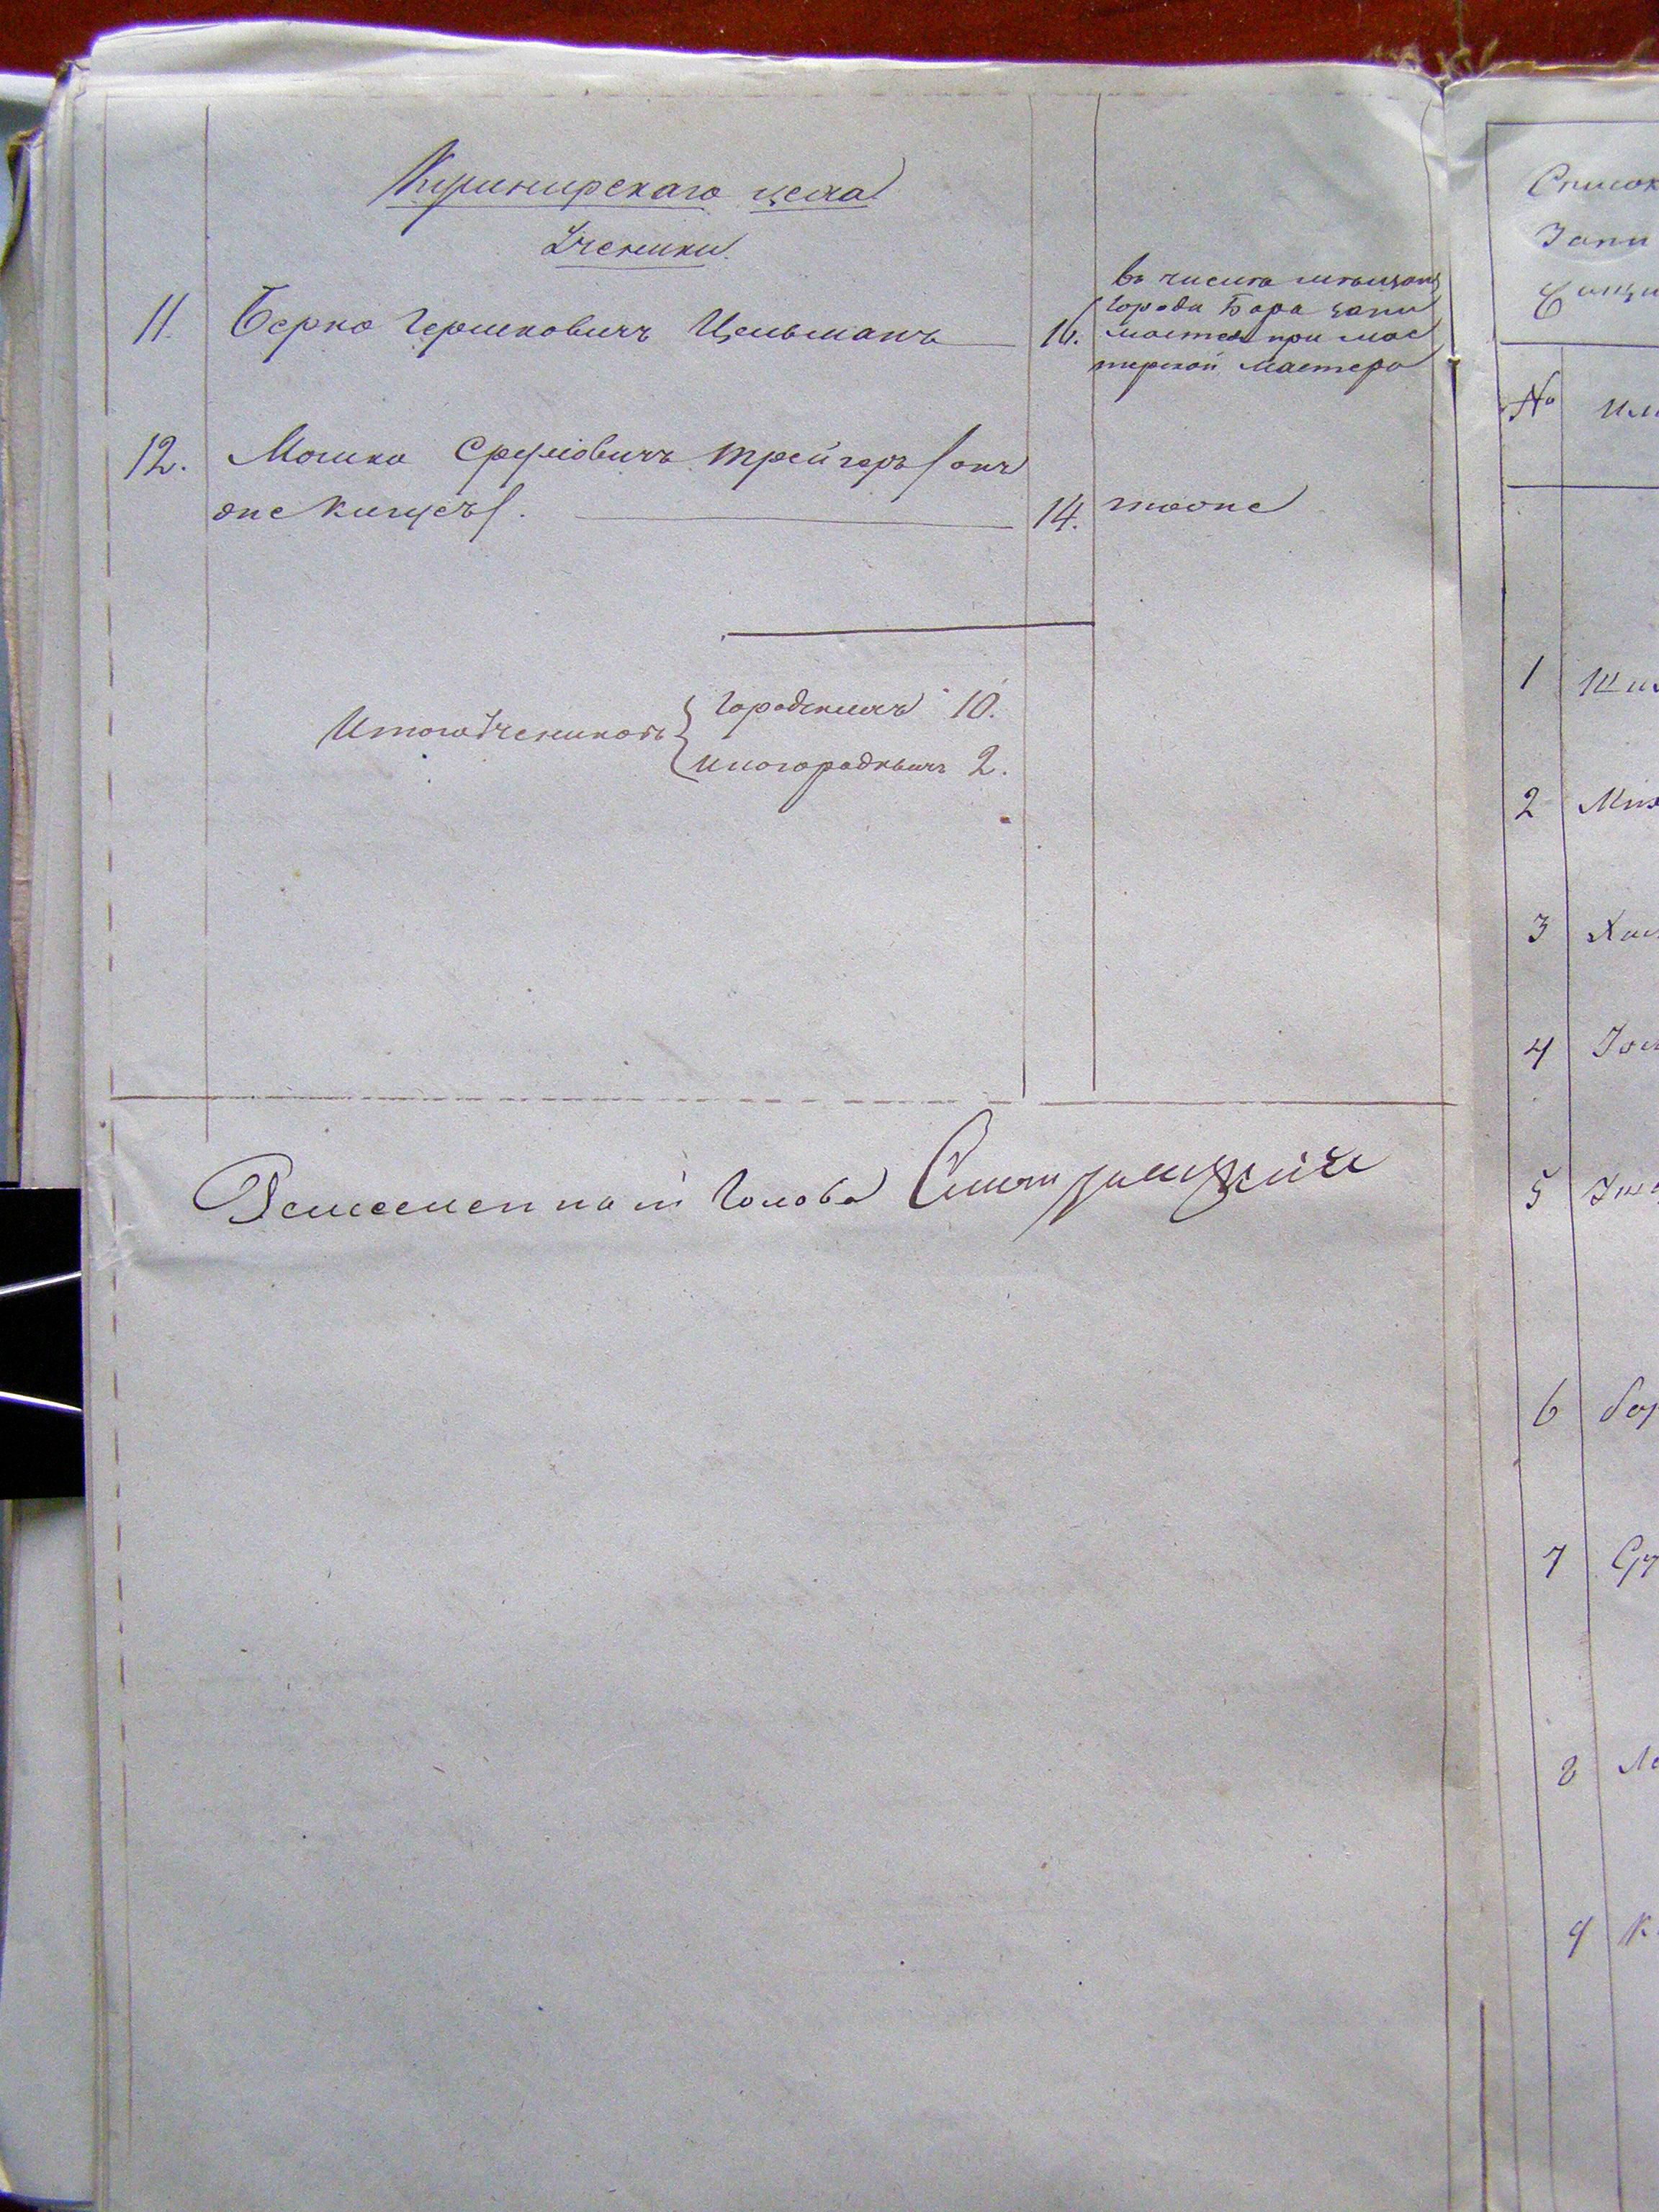 Кушнирскаго цеха
Ученики.
11. Берко Гершковичъ Цельманъ 16.
въ числѣ мѣщанъ
города Бара зани
мается при мас
терской мастера
12. Мошко Сруловичъ Трейгеръ (онъ
же Кицусъ). 14. тоже
Итого Учениковъ { городскихъ 10.
иногородныхъ 2.
Ремесленный Голова
Список
Зани
№ Им
1 Ши
2 Мих
3 Хаи
4 Іос
5
6 Бор
7 Сру
8 Ле
9 К